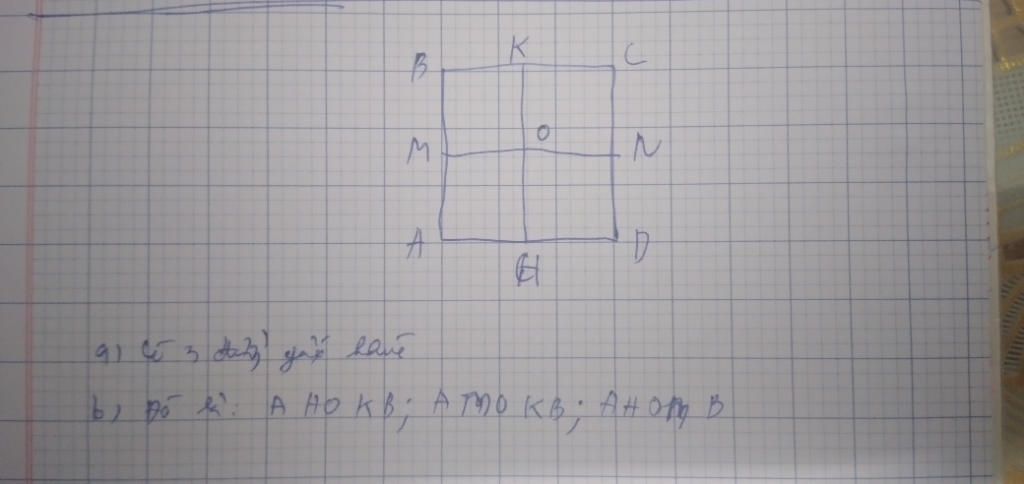 B K C
M O N
A H D
a) Có 3 đường gấp khúc
b) Đó là: A HO KB; AMO KB; AHOM B